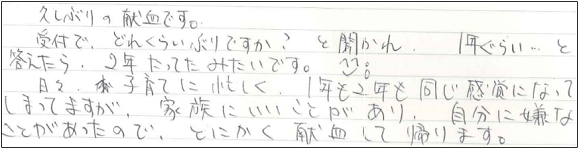 久しぶりの献血です。
受付で、どれくらいぶりですか？と聞かれ、1年ぐらい…と
答えたら、2年たってたみたいです。
日々、子育てに忙しく、1年も2年も同じ感覚になって
しまってますが、家族にいいことがあり、自分に嫌な
ことがあったので、とにかく献血して帰ります。